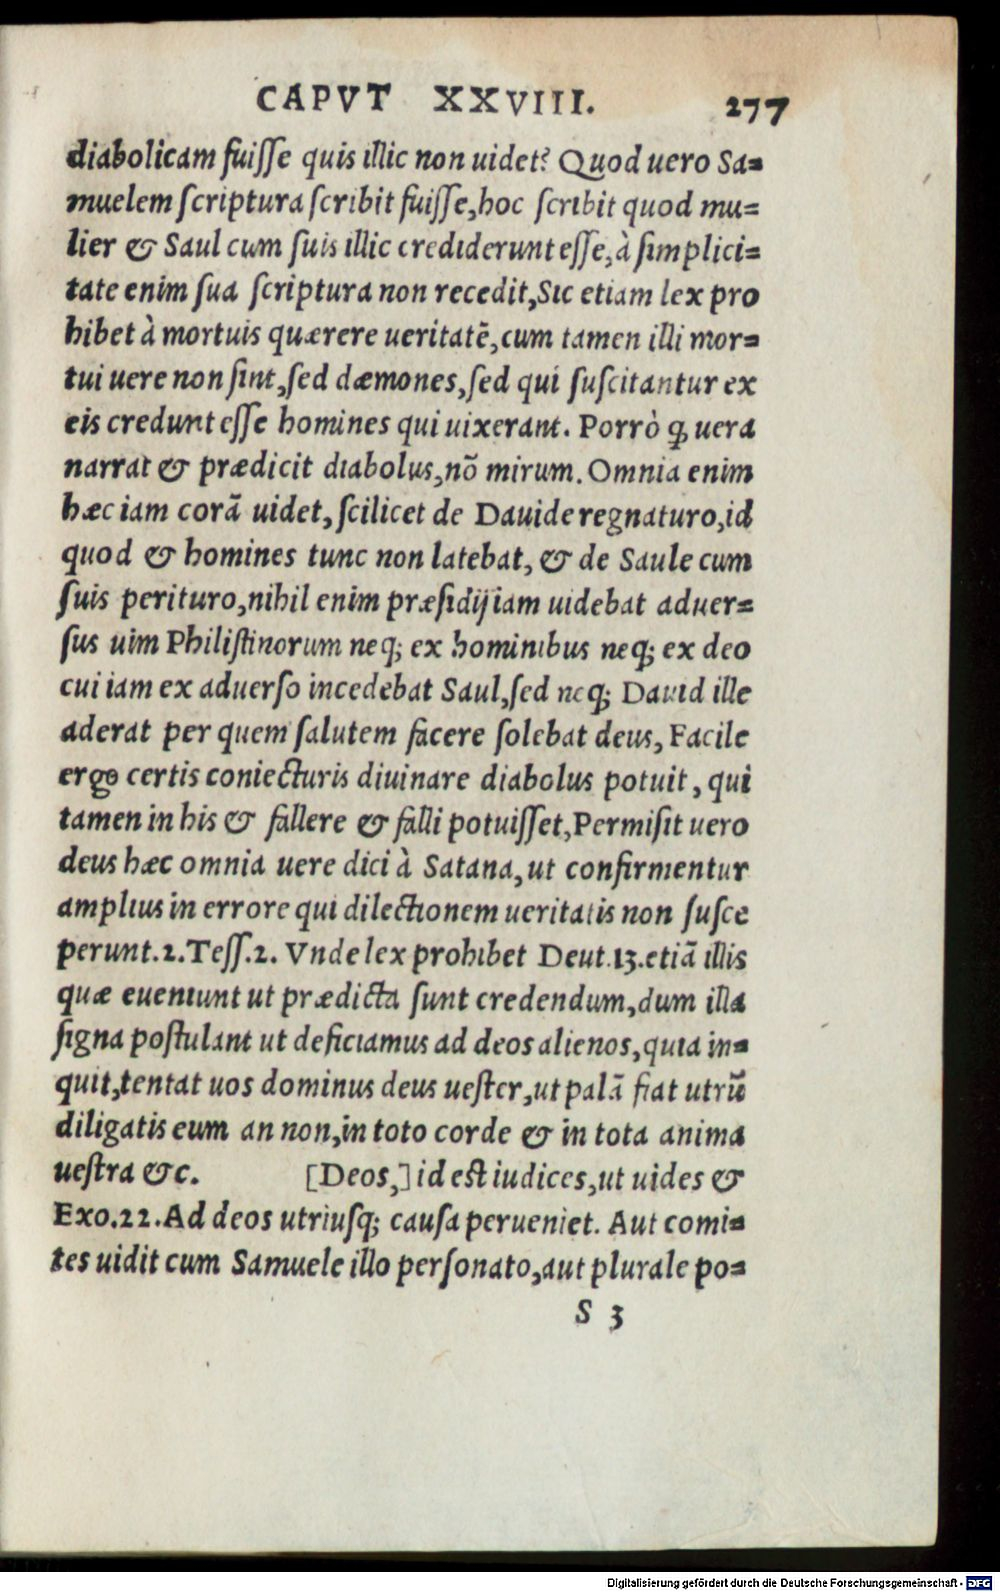 CAPVT XXVIII. 277
diabolicam fuiſſe quis illic non uidet? Quod uero Sa=
muelem ſcriptura ſcribit fuiſſe, hoc ſcribit quod mu=
lier & Saul cum ſuis illic crediderunt eſſe, à ſimplici=
tate enim ſua ſcriptura non recedit, Sic etiam lex pro
hibet à mortuis quærere ueritatē, cum tamen illi mor=
tui uere non ſint, ſed dæmones, ſed qui ſuſcitantur ex
eis credunt eſſe homines qui uixerant. Porrò ꝙ uera
narrat & prædicit diabolus, nō mirum. Omnia enim
hæc iam corā uidet, ſcilicet de Dauide regnaturo, id
quod & homines tunc non latebat, & de Saule cum
ſuis perituro, nihil enim præſidij iam uidebat aduer=
ſus uim Philiſtinorum neq; ex hominibus neq; ex deo
cui iam ex aduerſo incedebat Saul, ſed neq; Dauid ille
aderat per quem ſalutem facere ſolebat deus, Facile
ergo certis coniecturis diuinare diabolus potuit, qui
tamen in his & fallere & falli potuiſſet, Permiſit uero
deus hæc omnia uere dici à Satana, ut confirmentur
amplius in errore qui dilectionem ueritatis non ſuſce
perunt. 2. Teſſ. 2. Vnde lex prohibet Deut. 13. etiā illis
quæ eueniunt ut prædicta ſunt credendum, dum illa
ſigna poſtulant ut deficiamus ad deos alienos, quia in=
quit, tentat uos dominus deus ueſter, ut palā fiat utrū
diligatis eum an non, in toto corde & in tota anima
ueſtra &c. [Deos,] id eſt iudices, ut uides &
Exo. 22. Ad deos utriuſq; cauſa perueniet. Aut comi=
tes uidit cum Samuele illo perſonato, aut plurale po=
S 3
Digitalisierung gefördert durch die Deutsche Forschungsgemeinschaft - DFG